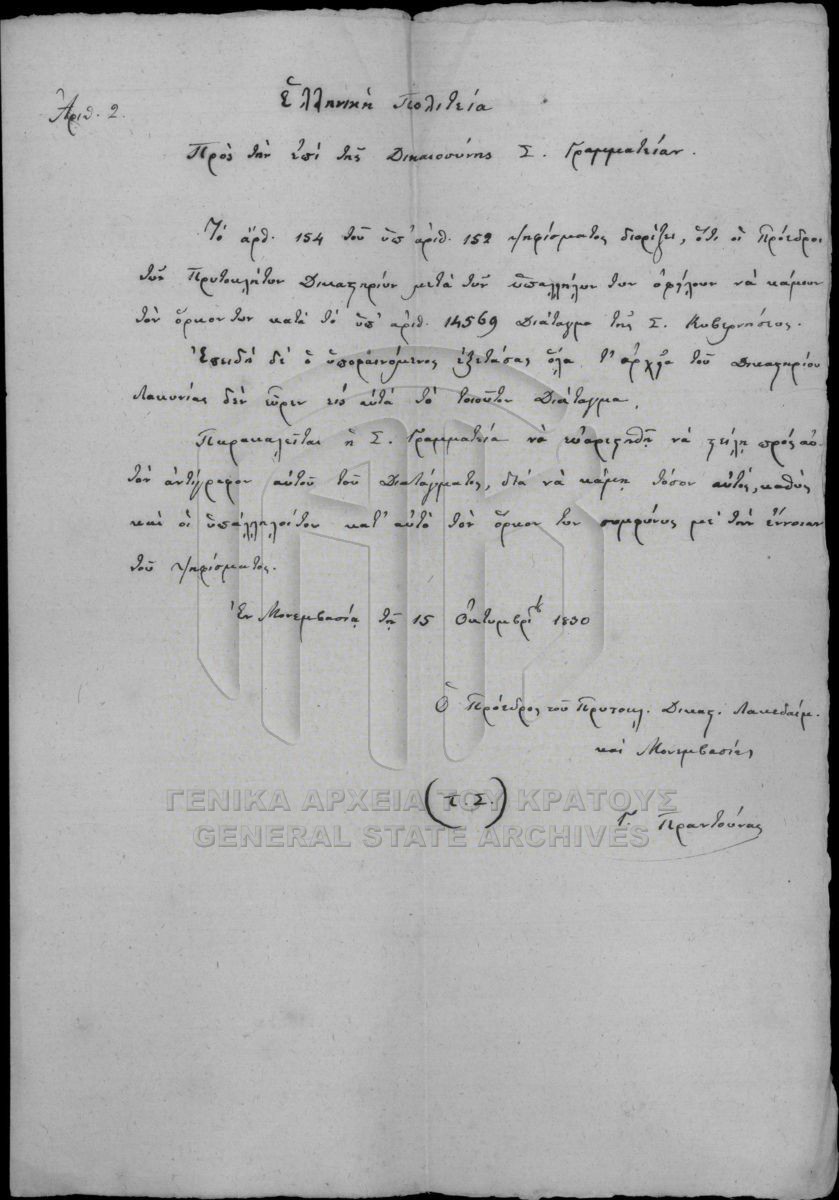 Ἀριθ. 2.
Ἑλληνικὴ Πολιτεία
Πρὸς τὴν ἐπὶ τῆς Δικαιοσύνης Σ. Γραμματείαν.
Τὸ ἄρθ. 154 τοῦ ὑπ' ἀριθ. 152 ψηφίσματος διορίζει, ὅτι οἱ Πρόεδροι
τῶν Πρωτοκλήτων Δικαστηρίων μετὰ τῶν ὑπαλλήλων των ὀφείλουν νὰ κάμουν
τὸν ὅρκον των κατὰ τὸ ὑπ' ἀριθ. 14569 Διάταγμα τῆς Σ. Κυβερνήσεως.
Ἐπειδὴ δὲ ὁ ὑποφαινόμενος ἐξετάσας ὅλα τ' ἀρχεῖα τοῦ Δικαστηρίου
Λακωνίας δὲν εὗρεν εἰς αὐτὰ τὸ τοιοῦτον Διάταγμα,
Παρακαλεῖται ἡ Σ. Γραμματεία νὰ εὐαρεστηθῇ νὰ στείλῃ πρὸς αὐ-
τὸν ἀντίγραφον αὐτοῦ τοῦ Διατάγματος, διὰ νὰ κάμῃ τόσον αὐτὸς, καθὼς
καὶ οἱ ὑπάλληλοί του κατ' αὐτὸ τὸν ὅρκον των συμφώνως μὲ τὴν ἔννοιαν
τοῦ ψηφίσματος.
Ἐν Μονεμβασίᾳ τῇ 15 Ὀκτωμβρίου 1830
Ὁ Πρόεδρος τοῦ Πρωτοκλ. Δικαστ. Λακεδαίμ.
καὶ Μονεμβασίας
(Τ. Σ.)
Γ. Πραντούνας
ΓΕΝΙΚΑ ΑΡΧΕΙΑ ΤΟΥ ΚΡΑΤΟΥΣ
GENERAL STATE ARCHIVES